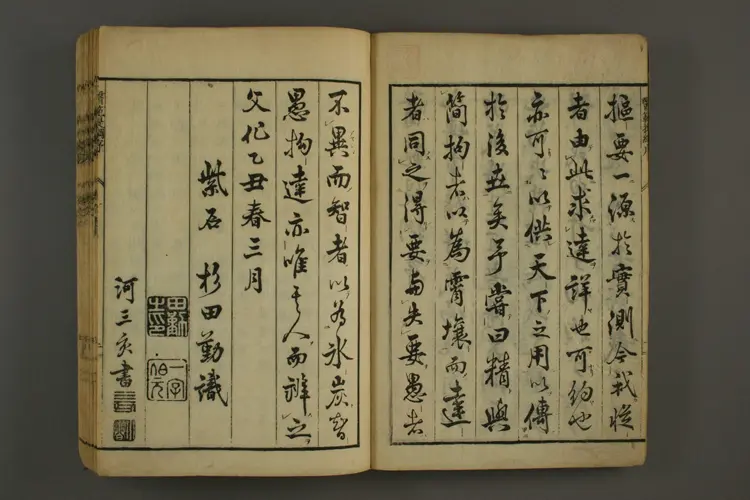 樞要一源於實測今我從
者由此求達詳也可約也
亦可〻以供天下之用以傳
於後世矣予嘗曰精與
簡拘者以為霄壤而達
者同之得要與失要愚者
不異而智者以為氷炭智
愚拘達亦唯其人而辨之
文化乙丑春三月
紫石 杉田勤識
一字伯元
河三亥書